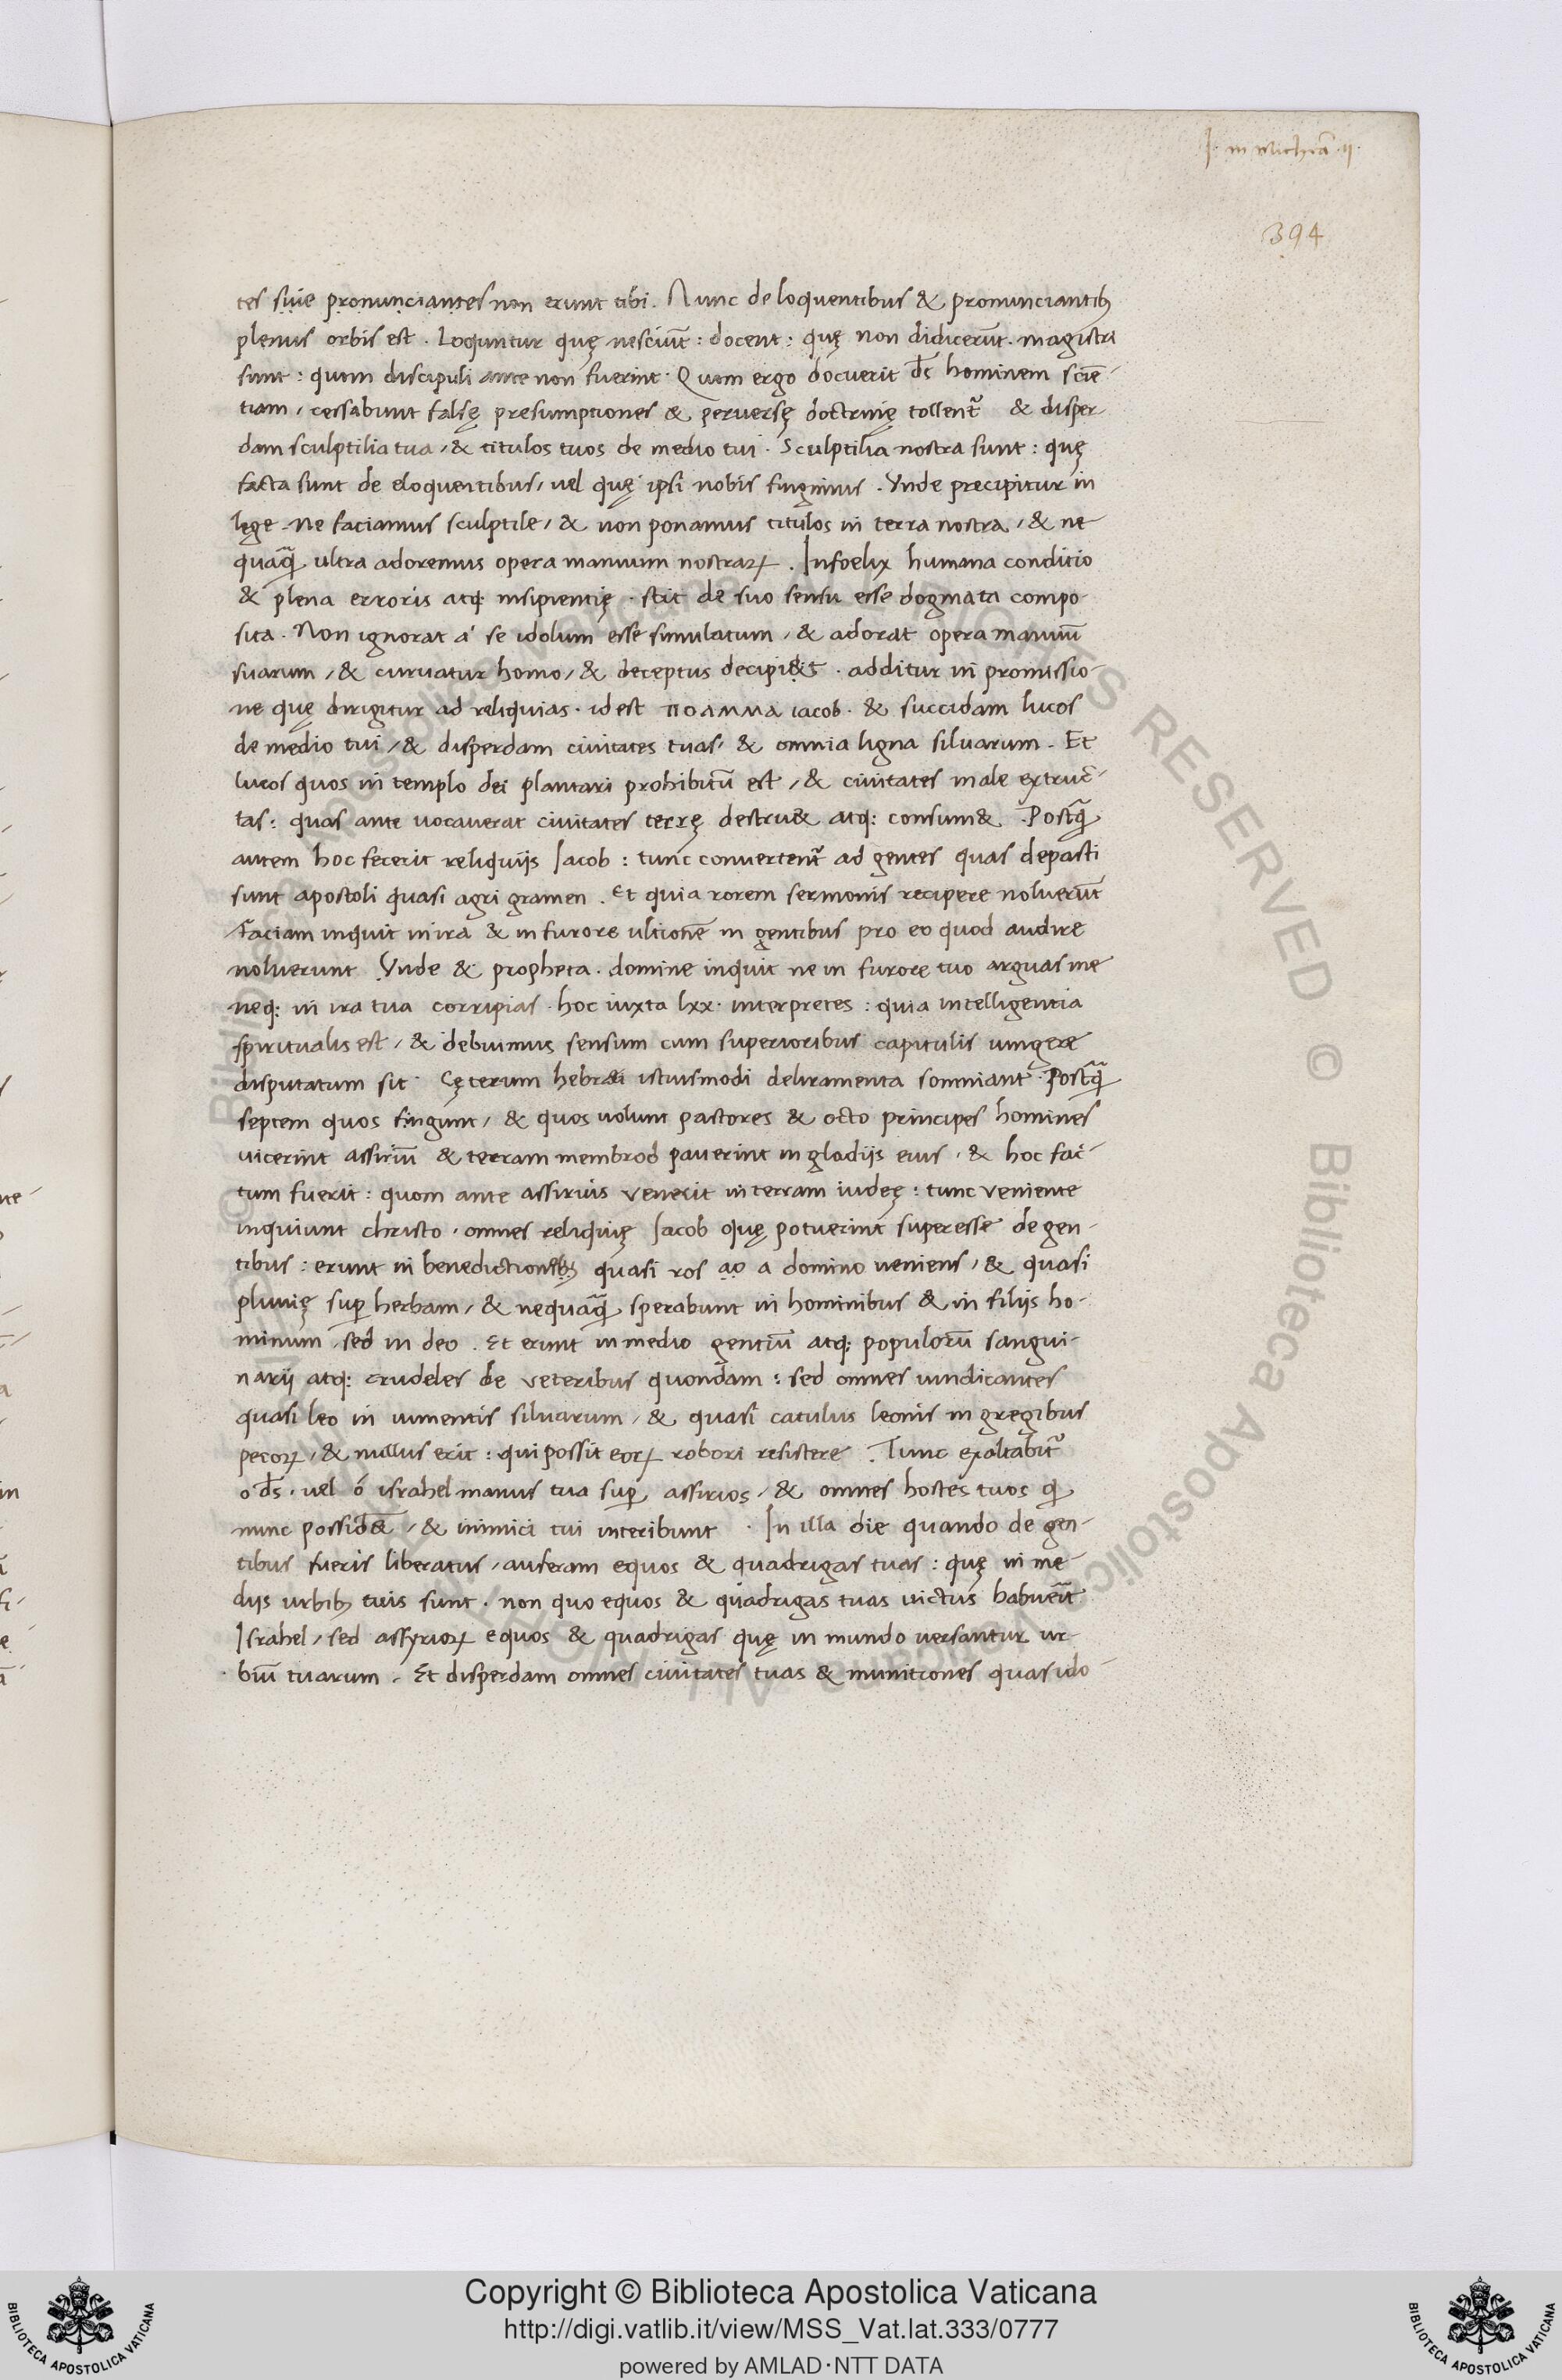 I. in Micheã .II.
394
tes siue pronunciantes non erunt tibi. Nunc de loquentibus & pronunciantibꝫ
plenus orbis est. Loquntur quę nesciũt: docent: quę non didicerũt. magistri
sunt: quom discipuli ante non fuerint. Quom ergo docuerit d̃s hominem sciẽ-
tiam, cessabunt falsę presumptiones & peruersę doctrinę tollent᷑ & disper-
dam sculptilia tua, & titulos tuos de medio tui. Sculptilia nostra sunt: quę
facta sunt de eloquentibus, uel quę ipsi nobis fingimus. Vnde precipitur in
lege. ne faciamus sculptile, & non ponamus titulos in terra nostra, & ne
quaq̃ ultra adoremus opera manuum nostraꝝ. Infoelix humana conditio
& plena erroris atq: insipientię. scit de suo sensu esse dogmata compo-
sita. Non ignorat a' se idolum esse simulatum, & adorat opera manuũ
suarum, & curuatur homo, & deceptus decipi&t. additur in promissio-
ne quę dirigitur ad reliquias. idest ΠΟΛΜΜΑ iacob. & succidam lucos
de medio tui, & disperdam ciuitates tuas, & omnia ligna siluarum. Et
lucos quos in templo dei plantari prohibitũ est, & ciuitates male extruc-
tas: quas ante uocauerat ciuitates terrę destru& atq: consum&. Postq̃
autem hoc fecerit reliquijs Iacob: tunc conuertent᷑ ad gentes quas depasti
sunt apostoli quasi agri gramen. Et quia rorem sermonis recipere noluerũt
Faciam inquit in ira & in furore ultionẽ in gentibus pro eo quod audire
noluerunt. Vnde & propheta. domine inquit ne in furore tuo arguas me
neq: in ira tua corripias. hoc iuxta lxx. interpretes: quia intelligentia
spiritualis est, & debuimus sensum cum superioribus capitulis iungere
disputatum sit. Cęterum hebraei istiusmodi deliramenta somniant. Postq̃
septem quos fingunt, & quos uolunt pastores & octo principes homines
uicerint assiriũ & terram membrod pauerint in gladijs eius. & hoc fac-
tum fuerit: quom ante assirius venerit in terram iudeę: tunc veniente
inquiunt christo. omnes reliquię Iacob quę potuerint superesse de gen-
tibus: erunt in benedictionebꝫ quasi ros ao a domino ueniens, & quasi
pluuię suꝑ herbam, & nequaq̃ sperabunt in hominibus & in filijs ho-
minum, sed in deo. Et erunt in medio gentiũ atq: populorũ sangui-
narij atq: crudeles de veteribus quondam: sed omnes uindicantes
quasi leo in iumentis siluarum, & quasi catulus leonis in gregibus
pecoꝝ, & nullus erit: qui possit eoꝝ robori resistere. Tunc exaltabit᷑
o d̃s. uel ó israhel manus tua suꝑ assirios, & omnes hostes tuos q̃
nunc possid&, & inimici tui interibunt. In illa die quando de gen-
tibus fueris liberatus, auferam equos & quadrigas tuas: quę in me-
dijs urbibꝫ tuis sunt. non quo equos & quadrigas tuas uictus habuerit
Israhel, sed assyrioꝝ equos & quadrigas quę in mundo uersantur ur-
biũ tuarum. Et disperdam omnes ciuitates tuas & munitiones quas ido-
Copyright © Biblioteca Apostolica Vaticana
http://digi.vatlib.it/view/MSS_Vat.lat.333/0777
powered by AMLAD·NTT DATA